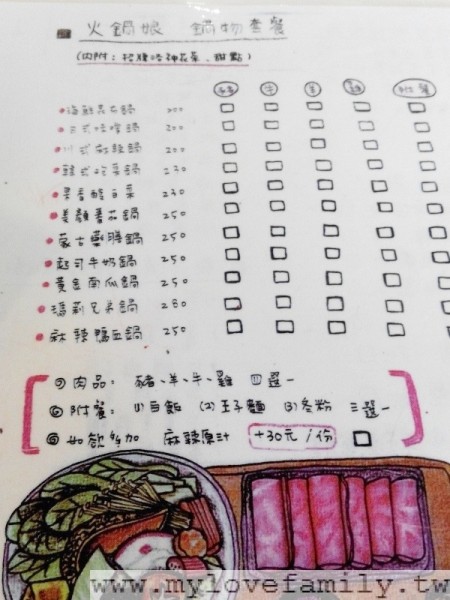 火鍋娘 鍋物套餐
豬 牛 羊 雞 附餐
海鮮昆布鍋 200
日式味噌鍋 200
川式麻辣鍋 200
韓式泡菜鍋 230
230
美顏番茄鍋 250
蒙古藥膳鍋 250
起司牛奶鍋 250
黃金南瓜鍋 250
瑪莉兄弟鍋 280
麻辣鴨血鍋 250
肉品: 豬、羊、牛、雞 四選一
附餐: (1)白飯 (2)王子麵 (3)冬粉 三選一
如欲添加 麻辣原汁 +30元/份
www.mylovefamily.tw